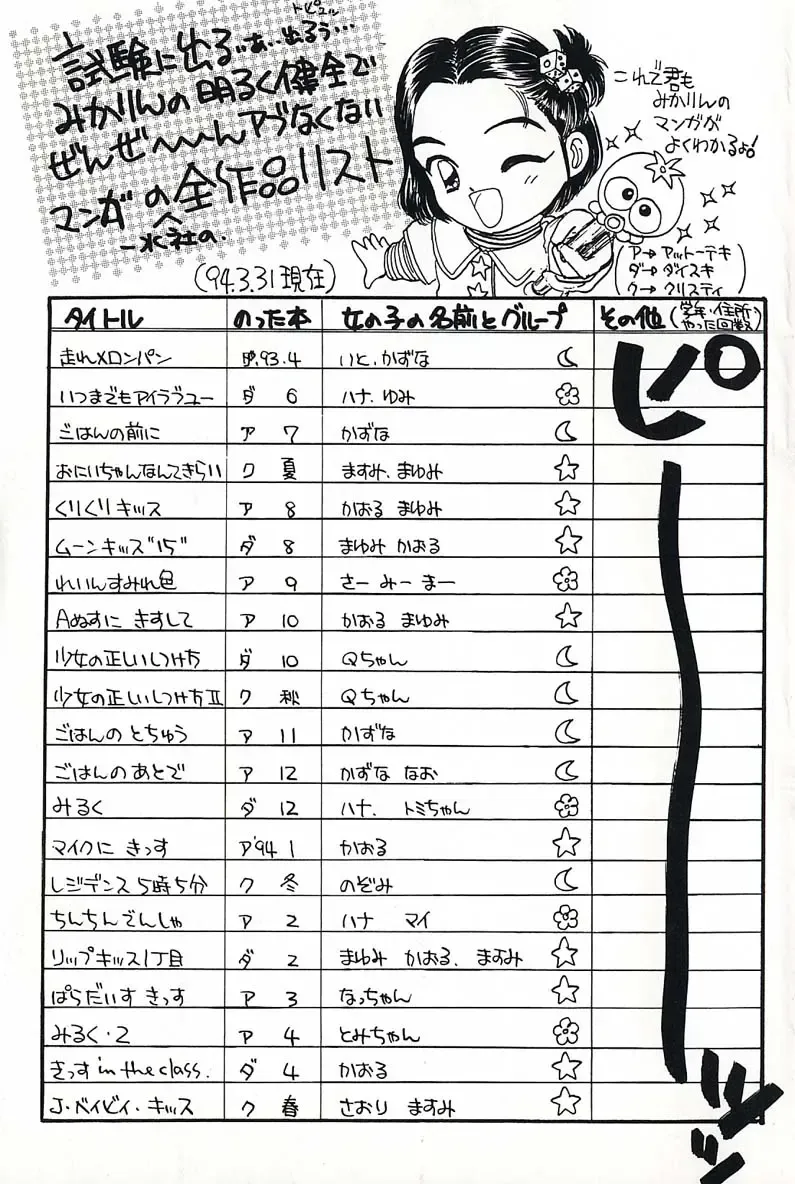 トピュル
試験に出る…あ…出るぅ…
みかりんの明るく健全で
ぜんぜ〜〜んアブなくない
マンガの全作品リスト
一水社の.
('94.3.31現在)
これで君も
みかりんの
マンガが
よくわかるよ!
ア→ アットーテキ
ダ→ ダイスキ
ク→ クリスティ
タイトル のった本 女の子の名前とグループ その他(学年・住所・やった回数)
走れメロンパン '93.4 いと.かずな
いつまでもアイラブユー ダ 6 ハナ.ゆみ
ごはんの前に ア 7 かずな
おにいちゃんなんてきらい ク 夏 ますみ.まゆみ
くりくりキッス ア 8 かおる まゆみ
ムーンキッス"15" ダ 8 まゆみ かおる
れいんすみれ色 ア 9 さー みー まー
Aぬすに きすして ア 10 かおる まゆみ
少女の正しいしつけ方 ダ 10 Qちゃん
少女の正しいしつけ方Ⅱ ク 秋 Qちゃん
ごはんの とちゅう ア 11 かずな
ごはんのあとで ア 12 かずな なお
みるく ダ 12 ハナ. トミちゃん
マイクに きっす ア'94 1 かおる
レジデンス5時5分 ク 冬 のぞみ
ちんちんでんしゃ ア 2 ハナ マイ
リップキッス1丁目 ダ 2 まゆみ かおる. ますみ
ぱらだいす きっす ア 3 なっちゃん
みるく・2 ア 4 とみちゃん
きっす in the class. ダ 4 かおる
J・ベイビィ・キッス ク 春 さおり ますみ
ピーッッ